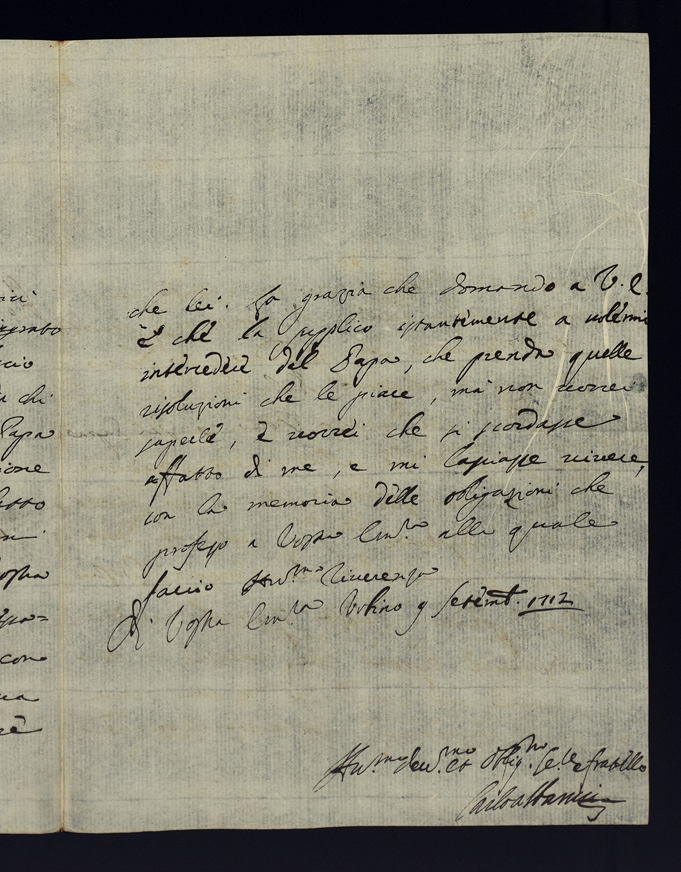 che lei. La grazia che domando a V. E.
è che la supplico istantemente a volermi
intercedere dal Papa, che prenda quelle
risoluzioni che le piace, mà non vorrei
saperle, e vorrei che si scordasse
affatto di me, e mi lasciasse vivere,
con la memoria delle obligazioni che
professo a Vostra Em.za alla quale
faccio Hum.ma riverenza
Di Vostra Em.za Urbino 9 Setemb. 1712
Hu.mo deu.mo et oblig.mo Se.re e fratello
Carlo Albani
Papa
con